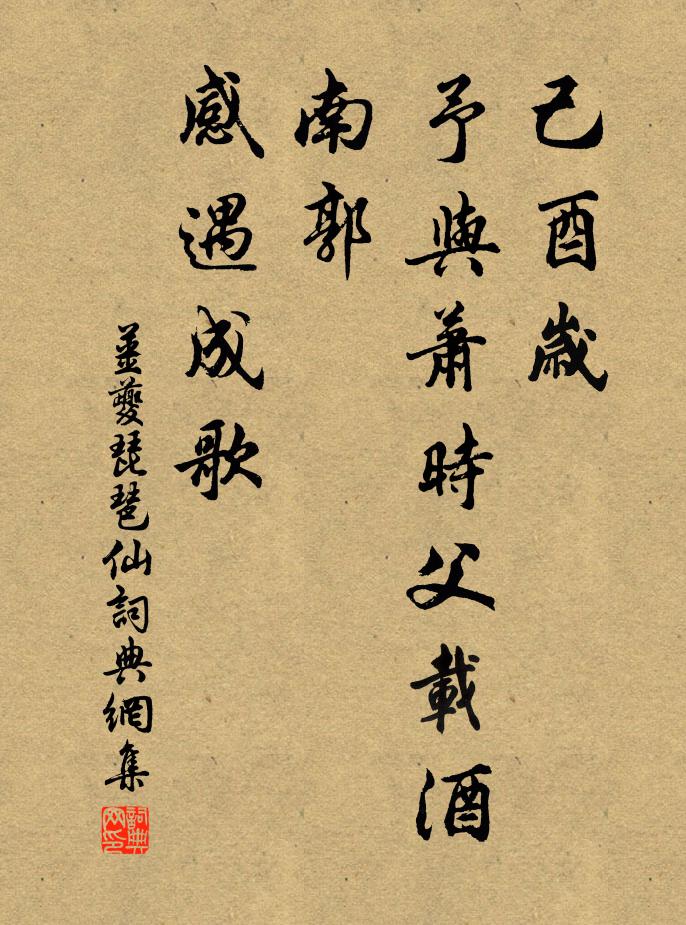 己酉歲
予與蕭時父載酒
南郭
感遇成歌
姜夔琵琶仙詞典網集
詞典网印